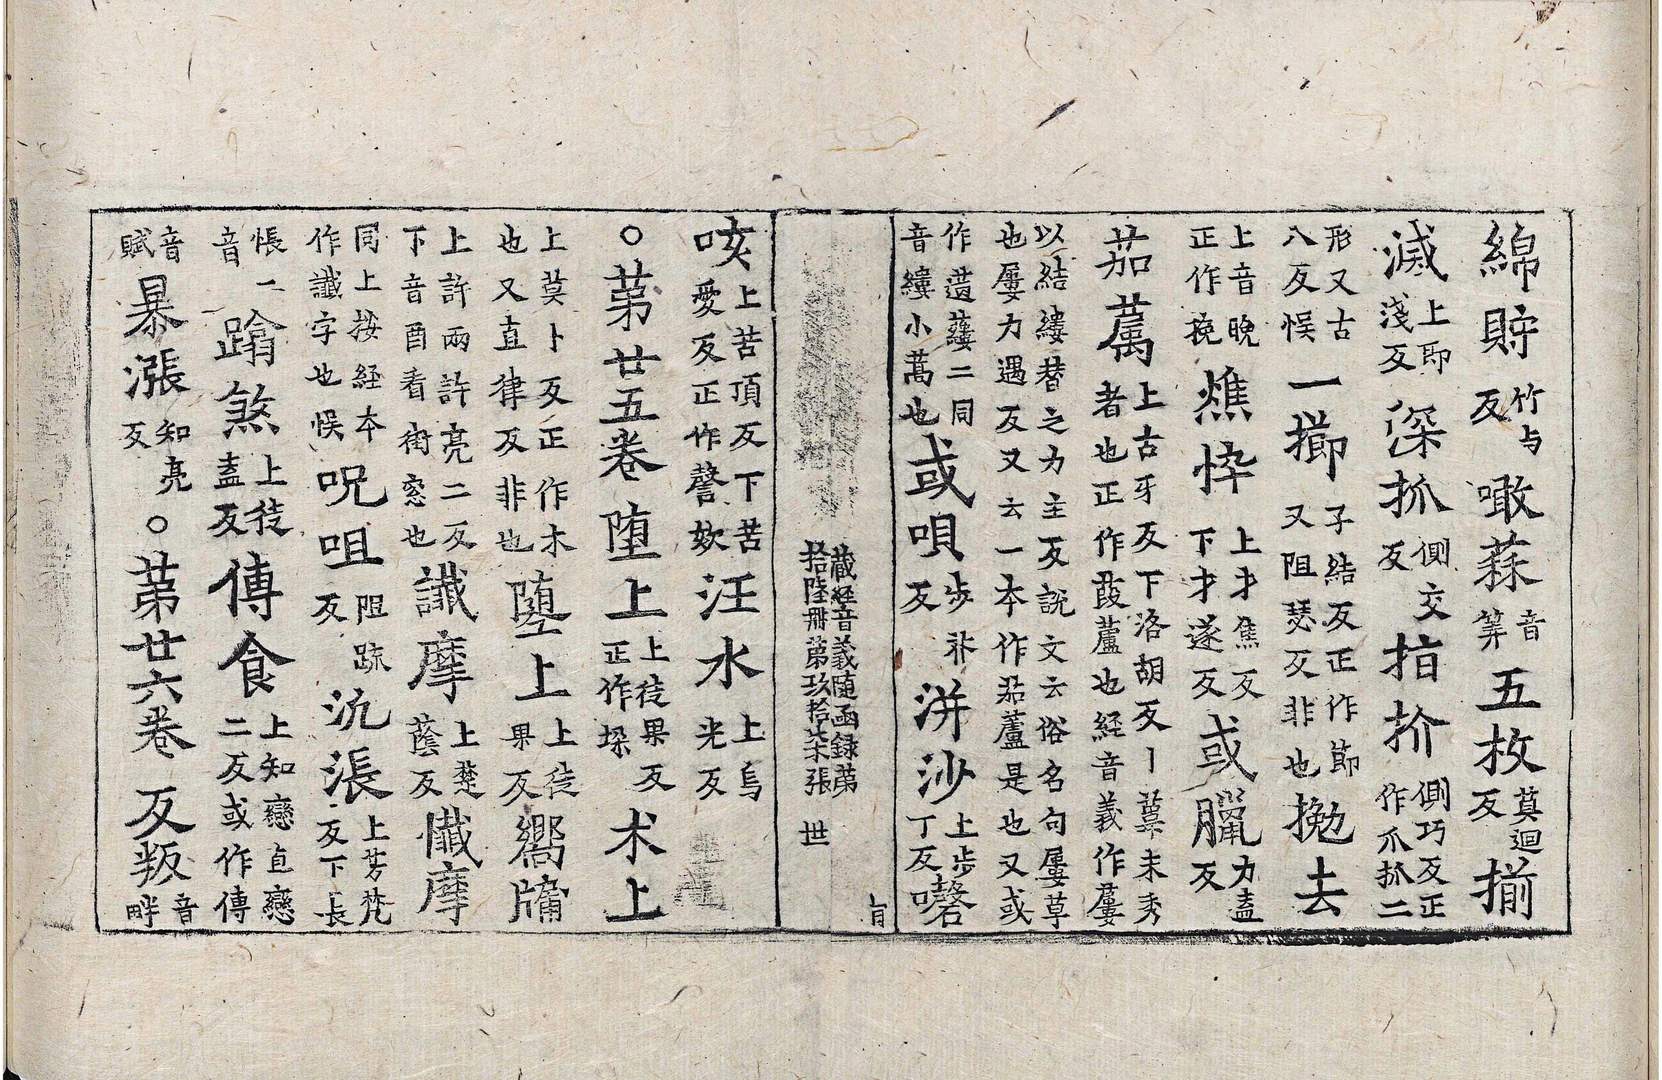 綿貯竹与反噉蒜音筭五枚莫迴反揃
滅上即淺反深抓側交反指抓側巧反正作爪抓二
形又古八反悮一擳子結反正作節又阻瑟反非也挽去
上音晚正作挽燋悴上才焦反下才遂反或臘力盍反
茄藘上古牙反下洛胡反丨葦未秀者也正作葭蘆也經音義作蔞
以結縷替之力主反說文云俗名句屨草也屨力遇反又云一本作茄蘆是也又或
作䔫蔞二同音縷小蒿也或唄步拜反洴沙上步丁反嚪
藏經音義隨函録苐拾陸冊苐玖拾柒張 世
咳上苦頂反下苦愛反正作謦欬汪水上烏光反
○苐廿五卷堕上上徒果反正作垛术上
上莫卜反正作木也又直律反非也墮上上徒果反嚮牖
上許兩許亮二反下音酉看街窓也讖摩上楚蔭反懺摩
同上按經本作讖字也悮呪咀阻踈反汎漲上芳梵反下長
悵二音蹹煞上徒盍反傳食上知戀直戀二反或作傳
音賦暴漲知亮反○苐廿六卷反叛音畔